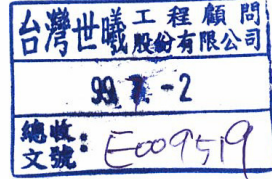 台灣世曦工程顧問股份有限公司
99. -2
總收文號：E009519